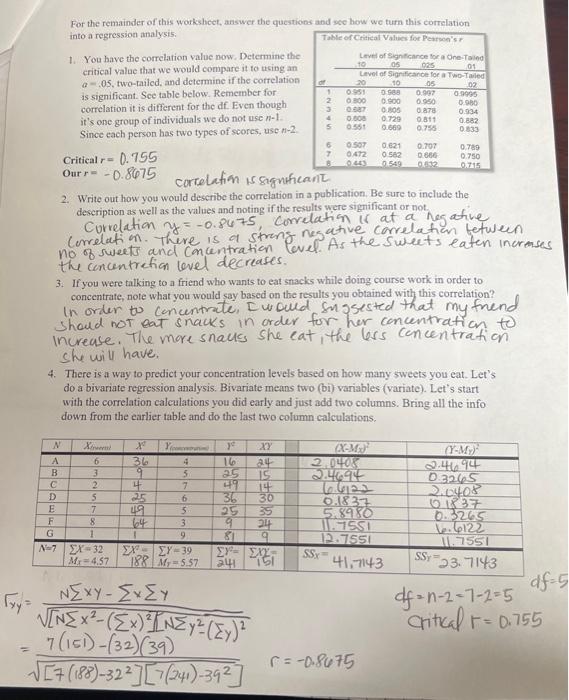 For the remainder of this worksheet, answer the questions and see how we turn this correlation
into a regression analysis.
Table of Critical Values for Pearson's r
Level of Significance for a One-Tailed
.10 .05 .025 .01
Level of Significance for a Two-Tailed
df .20 .10 .05 .02
1 0.951 0.988 0.997 0.9995
2 0.800 0.900 0.950 0.980
3 0.687 0.805 0.878 0.934
4 0.608 0.729 0.811 0.882
5 0.551 0.669 0.755 0.833
6 0.507 0.621 0.707 0.789
7 0.472 0.582 0.666 0.750
8 0.443 0.549 0.632 0.715
1. You have the correlation value now. Determine the
critical value that we would compare it to using an
α = .05, two-tailed, and determine if the correlation
is significant. See table below. Remember for
correlation it is different for the df. Even though
it's one group of individuals we do not use n-1.
Since each person has two types of scores, use n-2.
Critical r = 0.755
Our r = -0.8675
correlation is significant
2. Write out how you would describe the correlation in a publication. Be sure to include the
description as well as the values and noting if the results were significant or not.
Correlation r = -0.8675, Correlation is at a negative
Correlation. There is a strong negative correlation between
no of sweets and concentration level. As the sweets eaten increases
the concentration level decreases.
3. If you were talking to a friend who wants to eat snacks while doing course work in order to
concentrate, note what you would say based on the results you obtained with this correlation?
In order to concentrate, I would suggested that my friend
should not eat snacks in order for her concentration to
increase. The more snacks she eat, the less concentration
she will have.
4. There is a way to predict your concentration levels based on how many sweets you eat. Let's
do a bivariate regression analysis. Bivariate means two (bi) variables (variate). Let's start
with the correlation calculations you did early and just add two columns. Bring all the info
down from the earlier table and do the last two column calculations.
N X(sweets) X² Y(concentration) Y² XY (X-Mx)² (Y-My)²
A 6 36 4 16 24 2.0408 2.4694
B 3 9 5 25 15 2.4694 0.3265
C 2 4 7 49 14 6.6122 2.0408
D 5 25 6 36 30 0.1837 0.1837
E 7 49 5 25 35 5.8980 0.3265
F 8 64 3 9 24 11.7551 6.6122
G 1 1 9 81 9 12.7551 11.7551
N=7 ΣX=32 ΣX²= ΣY=39 ΣY²= ΣXY= SSx= SSy=
Mx=4.57 188 My=5.57 241 151 41.7143 23.7143
df=5
rxy = NΣXY - ΣXΣY
√[NΣX²-(ΣX)²][NΣY²-(ΣY)²]
df = n-2 = 7-2 = 5
Critical r = 0.755
= 7(151)-(32)(39)
√[7(188)-32²][7(241)-39²]
r = -0.8675